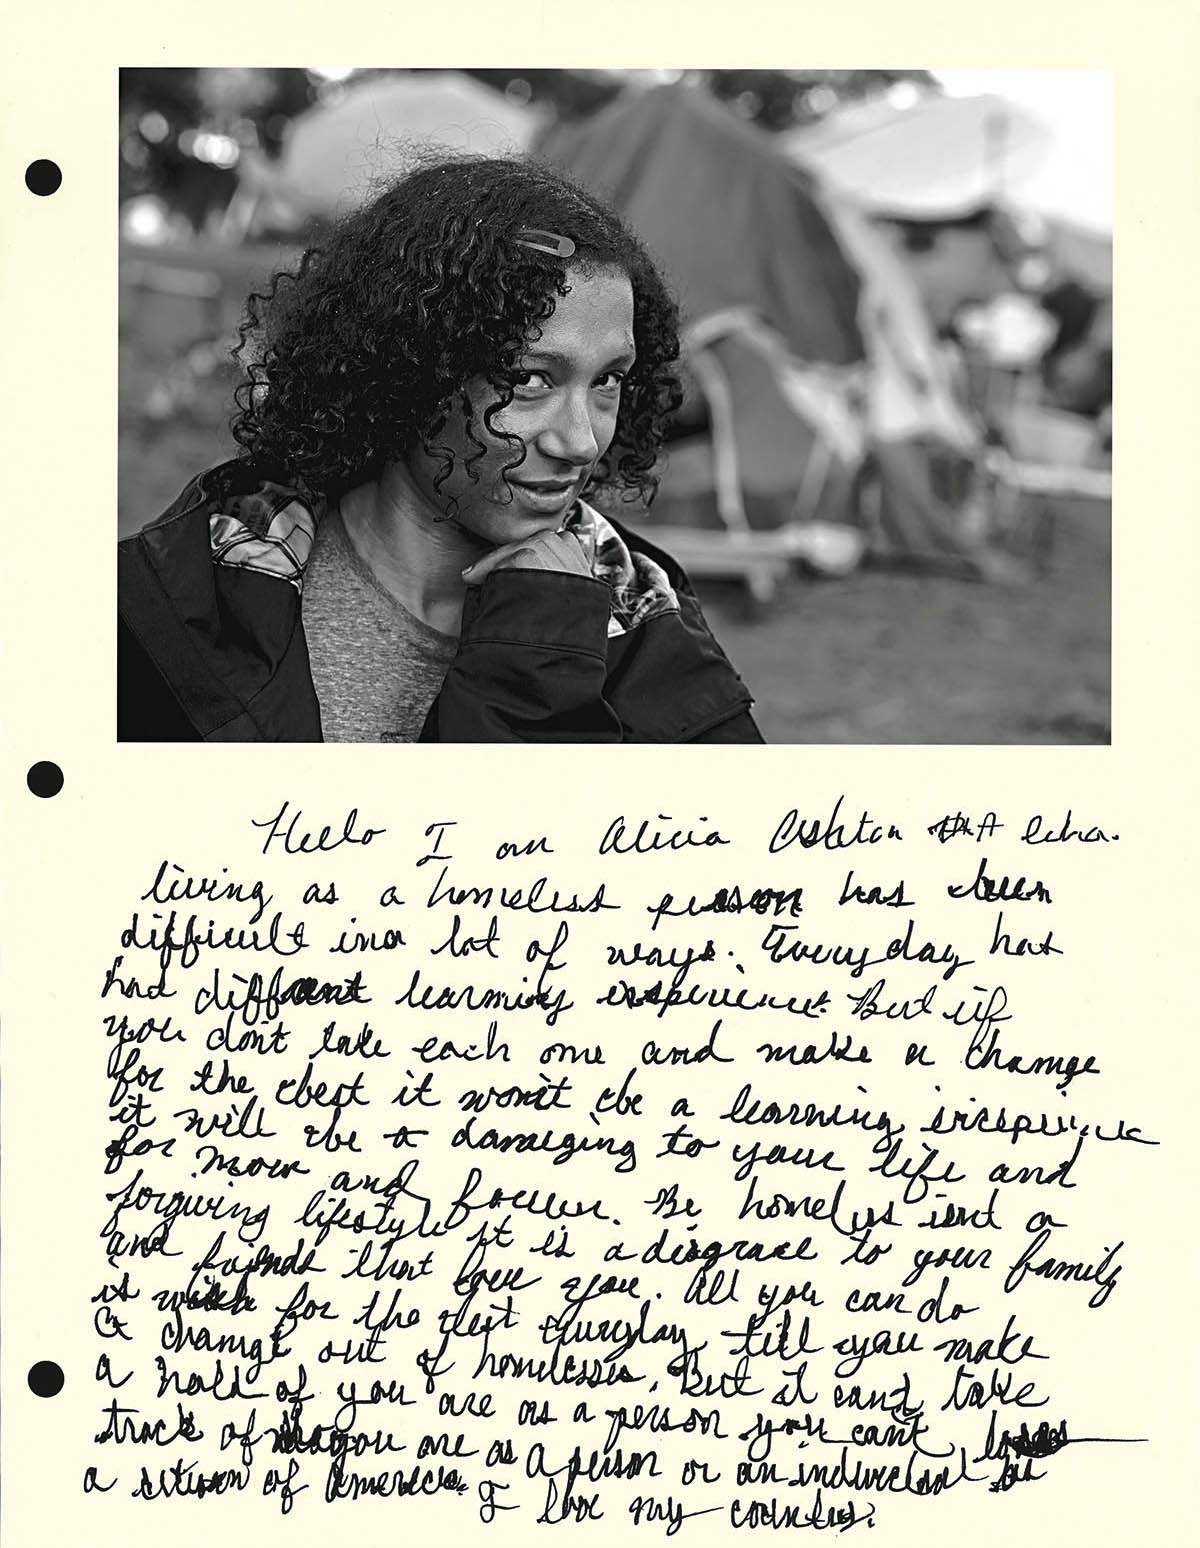 Hello I am Alicia Ashton
living as a homeless person has been
difficult in a lot of ways. Everyday has
had different learning experience. But if
you don't take each one and make a change
for the best it won't be a learning
it will be a damaging to your life and
for now and forever. Be homeless isnt a
forgiving lifestyle it is a disgrace to your family
and friends that love you. All you can do
is wish for the best everyday, till you make
a change out of homelesses. But it cant take
a hold of you are as a person you cant
track of you are as a person or an individual as
a citizen of America. I love my country.